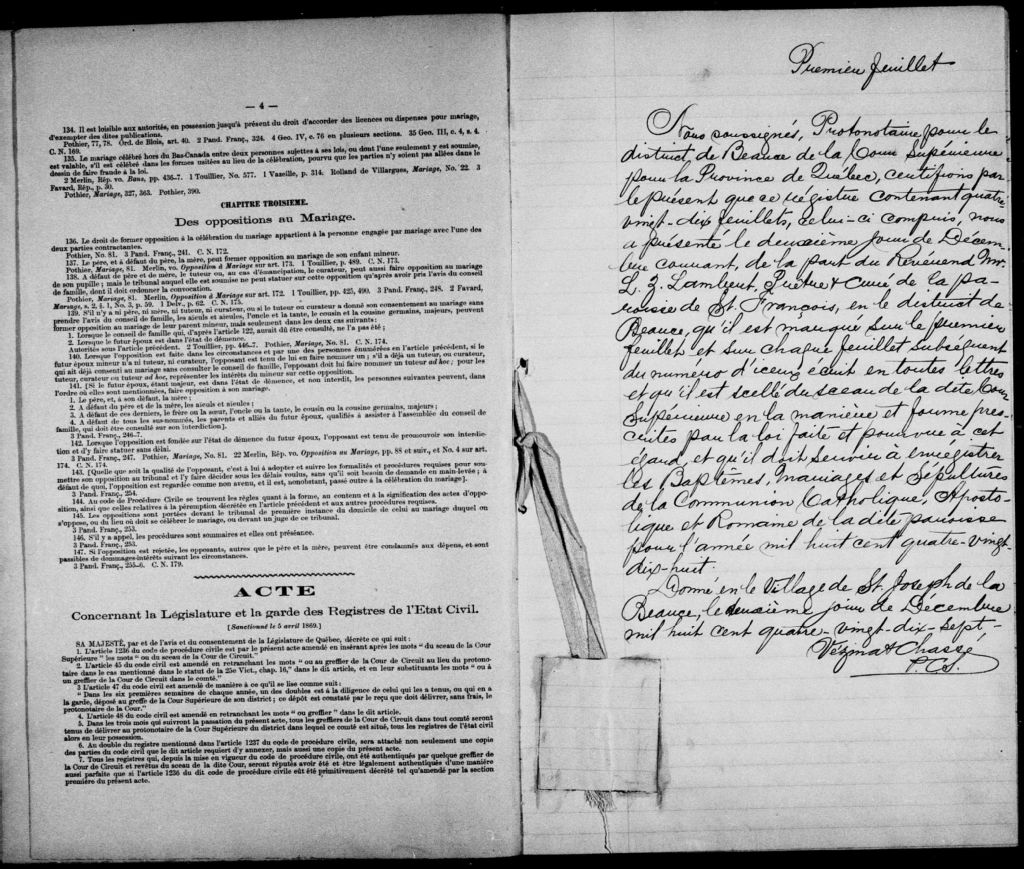 — 4 —
134. Il est loisible aux autorités, en possession jusqu'à présent du droit d'accorder des licences ou dispenses pour mariage,
d'exempter des dites publications.
Pothier, 77, 78. Ord. de Blois, art. 40. 2 Pand. Franç., 324. 4 Geo. IV, c. 76 en plusieurs sections. 35 Geo. III, c. 4, s. 4.
C. N. 169.
135. Le mariage célébré hors du Bas-Canada entre deux personnes sujettes à ses lois, ou dont l'une seulement y est soumise,
est valable, s'il est célébré dans les formes usitées au lieu de la célébration, pourvu que les parties n'y soient pas allées dans le
dessin de faire fraude à la loi.
2 Merlin, Rép. vo. Bans, pp. 436-7. 1 Touillier, No. 577. 1 Vazeille, p. 314. Rolland de Villargues, Mariage, No. 22. 3
Favard, Rép., p. 30.
Pothier, Mariage, 327, 363. Pothier, 390.
CHAPITRE TROISIEME.
Des oppositions au Mariage.
136. Le droit de former opposition à la célébration du mariage appartient à la personne engagée par mariage avec l'une des
deux parties contractantes.
Pothier, No. 81. 3 Pand. Franç., 241. C. N. 172.
137. Le père, et à défaut du père, la mère, peut former opposition au mariage de son enfant mineur.
Pothier, Mariage, 81. Merlin, vo. Opposition à Mariage sur art. 173. 1 Touillier, p. 489. C. N. 173.
138. A défaut de père et de mère, le tuteur ou, au cas d'émancipation, le curateur, peut aussi faire opposition au mariage
de son pupille; mais le tribunal auquel elle est soumise ne peut statuer sur cette opposition qu'après avoir pris l'avis du conseil
de famille, dont il doit ordonner la convocation.
Pothier, Mariage, 81. Merlin, Opposition à Mariage sur art. 172. 1 Touillier, pp. 425, 490. 3 Pand. Franç., 248. 2 Favard,
Mariage, s. 2, § 1, No. 3, p. 59. 1 Delv., p. 62. C. N. 175.
139. S'il n'y a ni père, ni mère, ni tuteur, ni curateur, ou si le tuteur ou curateur a donné son consentement au mariage sans
prendre l'avis du conseil de famille, les aïeuls et aïeules, l'oncle et la tante, le cousin et la cousine germains, majeurs, peuvent
former opposition au mariage de leur parent mineur, mais seulement dans les deux cas suivants:
1. Lorsque le conseil de famille qui, d'après l'article 122, aurait dû être consulté, ne l'a pas été;
2. Lorsque le futur époux est dans l'état de démence.
Autorités sous l'article précédent. 2 Touillier, pp. 446-7. Pothier, Mariage, No. 81. C. N. 174.
140. Lorsque l'opposition est faite dans les circonstances et par une des personnes énumérées en l'article précédent, si le
futur époux mineur n'a ni tuteur, ni curateur, l'opposant est tenu de lui en faire nommer un; s'il a déjà un tuteur, ou curateur
qui ait déjà consenti au mariage sans consulter le conseil de famille, l'opposant doit lui faire nommer un tuteur ad hoc; pour les
tuteur, curateur ou tuteur ad hoc, représenter les intérêts du mineur sur cette opposition.
141. [Si le futur époux, étant majeur, est dans l'état de démence, et non interdit, les personnes suivantes peuvent, dans
l'ordre où elles sont mentionnées, faire opposition à son mariage.
1. Le père, et, à son défaut, la mère;
2. A défaut du père et de la mère, les aïeuls et aïeules;
3. A défaut de ces derniers, le frère ou la sœur, l'oncle ou la tante, le cousin ou la cousine germains, majeurs;
4. A défaut de tous les sus-nommés, les parents et alliés du futur époux, qualifiés à assister à l'assemblée du conseil de
famille, qui doit être consulté sur son interdiction].
3 Pand. Franç., 246-7.
142. Lorsque l'opposition est fondée sur l'état de démence du futur époux, l'opposant est tenu de promouvoir son interdic-
tion et d'y faire statuer sans délai.
3 Pand. Franç., 247. Pothier, Mariage, No. 81. 22 Merlin, Rép. vo. Opposition au Mariage, pp. 88 et suiv., et No. 4 sur art.
174. C. N. 174.
143. [Quelle que soit la qualité de l'opposant, c'est à lui à adopter et suivre les formalités et procédures requises pour sou-
mettre son opposition au tribunal et l'y faire décider sous les délais voulus, sans qu'il soit besoin de demande en main-levée; à
défaut de quoi, l'opposition est regardée comme non avenu, et il est, nonobstant, passé outre à la célébration du mariage].
3 Pand. Franç., 254.
144. Au code de Procédure Civile se trouvent les règles quant à la forme, au contenu et à la signification des actes d'oppo-
sition, ainsi que celles relatives à la péremption décrétée en l'article précédent et aux autres procédures requises.
145. Les oppositions sont portées devant le tribunal de première instance du domicile de celui au mariage duquel on
s'oppose, ou du lieu où doit se célébrer le mariage, ou devant un juge de ce tribunal.
3 Pand. Franç., 253.
146. S'il y a appel, les procédures sont sommaires et elles ont préséance.
3 Pand. Franç., 253.
147. Si l'opposition est rejetée, les opposants, autres que le père et la mère, peuvent être condamnés aux dépens, et sont
passibles de dommages-intérêts suivant les circonstances.
3 Pand. Franç., 255-6. C. N. 179.
ACTE
Concernant la Législature et la garde des Registres de l'Etat Civil.
[Sanctionné le 5 avril 1869.]
SA MAJESTÉ, par et de l'avis et du consentement de la Législature de Québec, décrète ce qui suit:
1. L'article 1236 du code de procédure civile est par le présent acte amendé en insérant après les mots " du sceau de la Cour
Supérieure " les mots " ou du sceau de la Cour de Circuit."
2. L'article 45 du code civil est amendé en retranchant les mots " ou au greffier de la Cour de Circuit au lieu du protono-
taire dans le cas mentionné dans le statut de la 25e Vict., chap. 16," dans le dit article, et en leur substituants les mots " ou à
un greffier de la Cour de Circuit dans le comté."
3 L'article 47 du code civil est amendé de manière à ce qu'il se lise comme suit:
" Dans les six premières semaines de chaque année, un des doubles est à la diligence de celui qui les a tenus, ou qui en a
la garde, déposé au greffe de la Cour Supérieure de son district; ce dépôt est constaté par le reçu que doit délivrer, sans frais, le
protonotaire de la Cour."
4. L'article 48 du code civil est amendé en retranchant les mots " ou greffier " dans le dit article.
5. Dans les trois mois qui suivront la passation du présent acte, tous les greffiers de la Cour de Circuit dans tout comté seront
tenus de délivrer au protonotaire de la Cour Supérieure du district dans lequel ce comté est situé, tous les registres de l'état civil
alors en leur possession.
6. Au double du registre mentionné dans l'article 1237 du code de procédure civile, sera attaché non seulement une copie
des parties du code civil que le dit article requiert d'y annexer, mais aussi une copie du présent acte.
7. Tous les registres qui, depuis la mise en vigueur du code de procédure civile, ont été authentiqués par quelque greffier de
la Cour de Circuit et revêtus du sceau de la dite Cour, seront réputés avoir été et être légalement authentiqués d'une manière
aussi parfaite que si l'article 1236 du dit code de procédure civile eût été primitivement décrété tel qu'amendé par la section
première du présent acte.
Premier feuillet
Nous soussignés, Protonotaire pour le
district de Beauce de la Cour Supérieure
pour la Province de Québec, certifions par
le présent que ce registre contenant quatre-
vingt-dix feuillets, celui-ci compris, nous
a présenté le deuxième jour de Décem-
bre courant, de la part du Révérend Mr.
L. Z. Lambert, Prêtre & Curé de la pa-
roisse de St. François, en le district de
Beauce, qu'il est marqué sur le premier
feuillet et sur chaque feuillet subséquent
du numéro d'iceux écrit en toutes lettres
et qu'il est scellé du sceau de la dite Cour
Supérieure en la manière et forme pres-
crites par la loi faite et pourvue à cet
égard, et qu'il doit servir à enregistrer
les Baptêmes, Mariages et Sépultures
de la Communion Catholique, Aposto-
lique et Romaine de la dite paroisse
pour l'année mil huit cent quatre-vingt-
dix-huit.
Donné en le Village de St Joseph de la
Beauce, le deuxième jour de Décembre
mil huit cent quatre-vingt-dix-sept,
Vézina & Chassé
P. C. S.